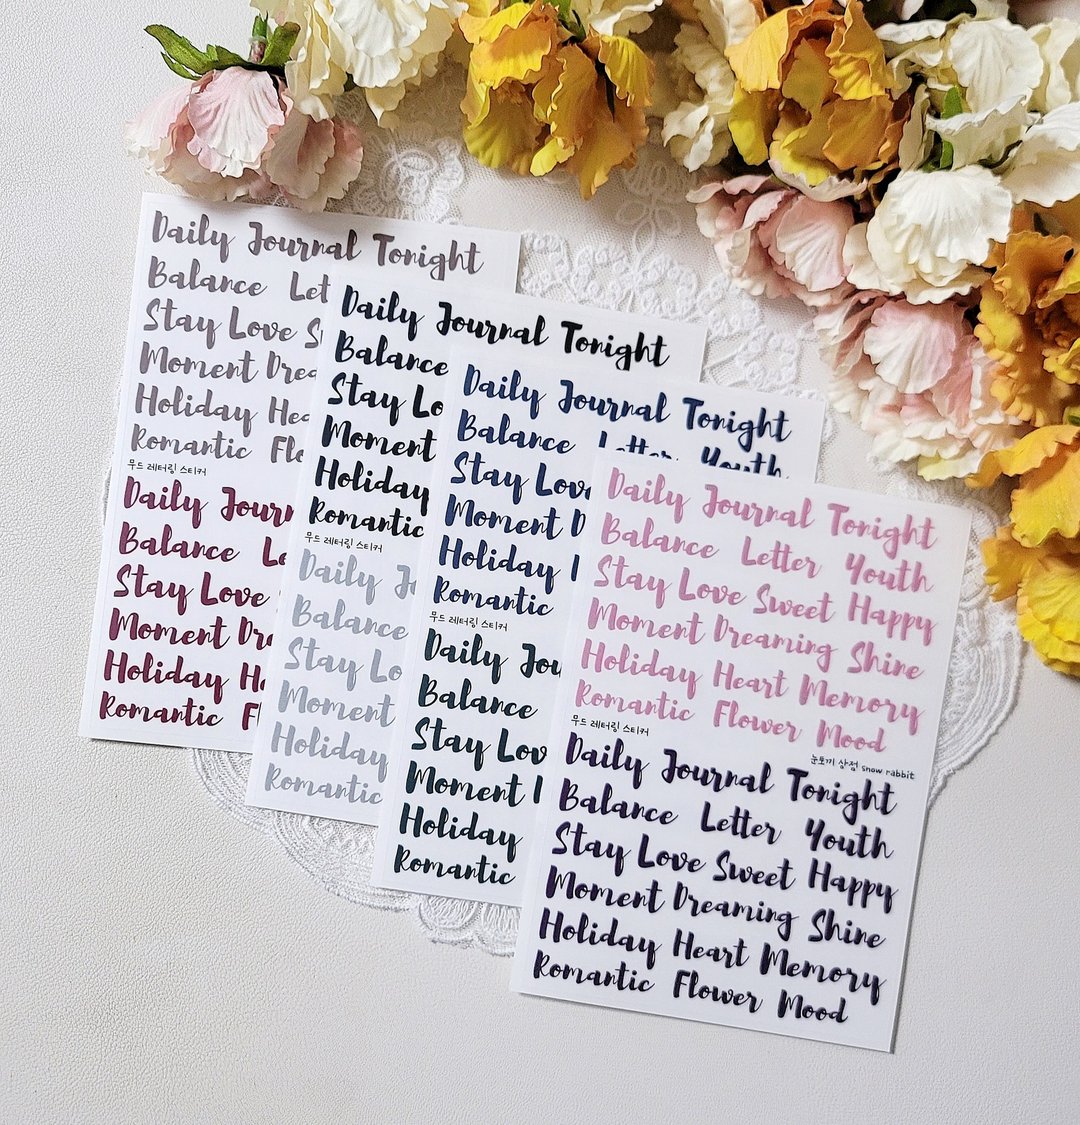 Daily Journal Tonight
Balance Let
Stay Love S
Moment Drea
Holiday Hea
Romantic Flo
무드 레터링 스티커
Daily Journ
Balance Le
Stay Love
Moment Dre
Holiday He
Romantic Fl
Daily Journal Tonight
Balance
Stay Lo
Moment
Holiday
Romantic
무드 레터링 스티커
Daily Jo
Balance
Stay Lo
Moment
Holiday
Romantic
Daily Journal Tonight
Balance Letter Youth
Stay Love
Moment D
Holiday
Romantic
무드 레터링 스티커
Daily Jou
Balance
Stay Lov
Moment
Holiday
Romantic
Daily Journal Tonight
Balance Letter Youth
Stay Love Sweet Happy
Moment Dreaming Shine
Holiday Heart Memory
Romantic Flower Mood
무드 레터링 스티커
눈토끼 상점 snow rabbit
Daily Journal Tonight
Balance Letter Youth
Stay Love Sweet Happy
Moment Dreaming Shine
Holiday Heart Memory
Romantic Flower Mood